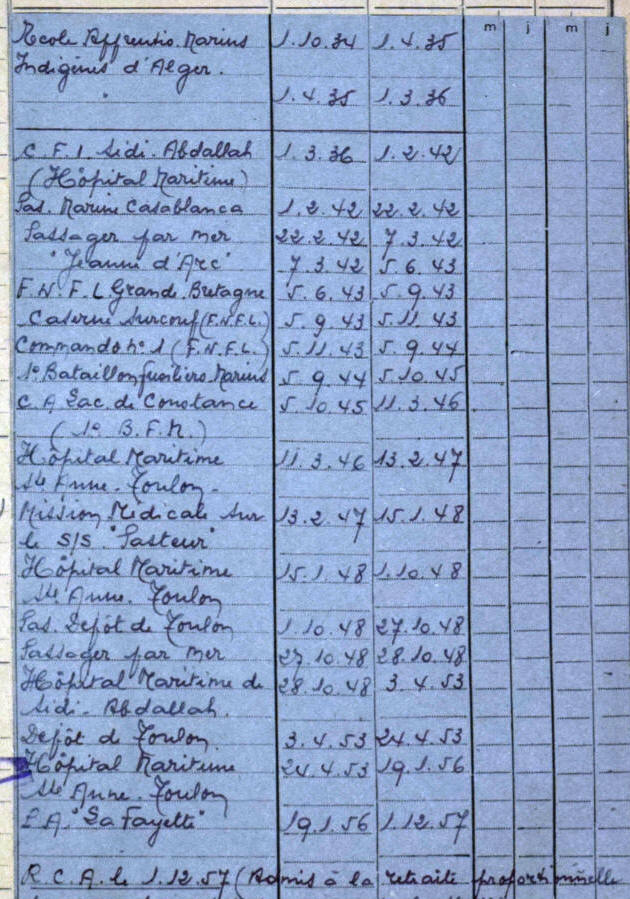 m j m j
Ecole Apprentis Marins 1.10.34 1.4.35
Indigènes d'Alger.
1.4.35 1.3.36
C.F.I. Sidi. Abdallah 1.3.36 1.2.42
(Hôpital Maritime)
Pas. Marine Casablanca 1.2.42 22.2.42
Passager par mer 22.2.42 7.3.42
"Jeanne d'Arc" 7.3.42 5.6.43
F.N.F.L. Grande. Bretagne 5.6.43 5.9.43
Caserne Surcouf (F.N.F.L.) 5.9.43 5.11.43
Commando n° 1 (F.N.F.L.) 5.11.43 5.9.44
1° Bataillon fusiliers Marins 5.9.44 5.10.45
C.A. Lac de Constance 5.10.45 11.3.46
(1° B.F.M.)
Hôpital Maritime 11.3.46 13.2.47
Ste Anne. Toulon.
Mission Médicale sur 13.2.47 15.1.48
le S/S "Pasteur"
Hôpital Maritime 15.1.48 1.10.48
Ste Anne. Toulon
Pas. Dépôt de Toulon 1.10.48 27.10.48
Passager par mer 27.10.48 28.10.48
Hôpital Maritime de 28.10.48 3.4.53
Sidi. Abdallah.
Dépôt de Toulon 3.4.53 24.4.53
Hôpital Maritime 24.4.53 19.1.56
Ste Anne. Toulon
P.A. "La Fayette" 19.1.56 1.12.57
R.C.A. le 1.12.57 (Admis à la retraite proportionnelle